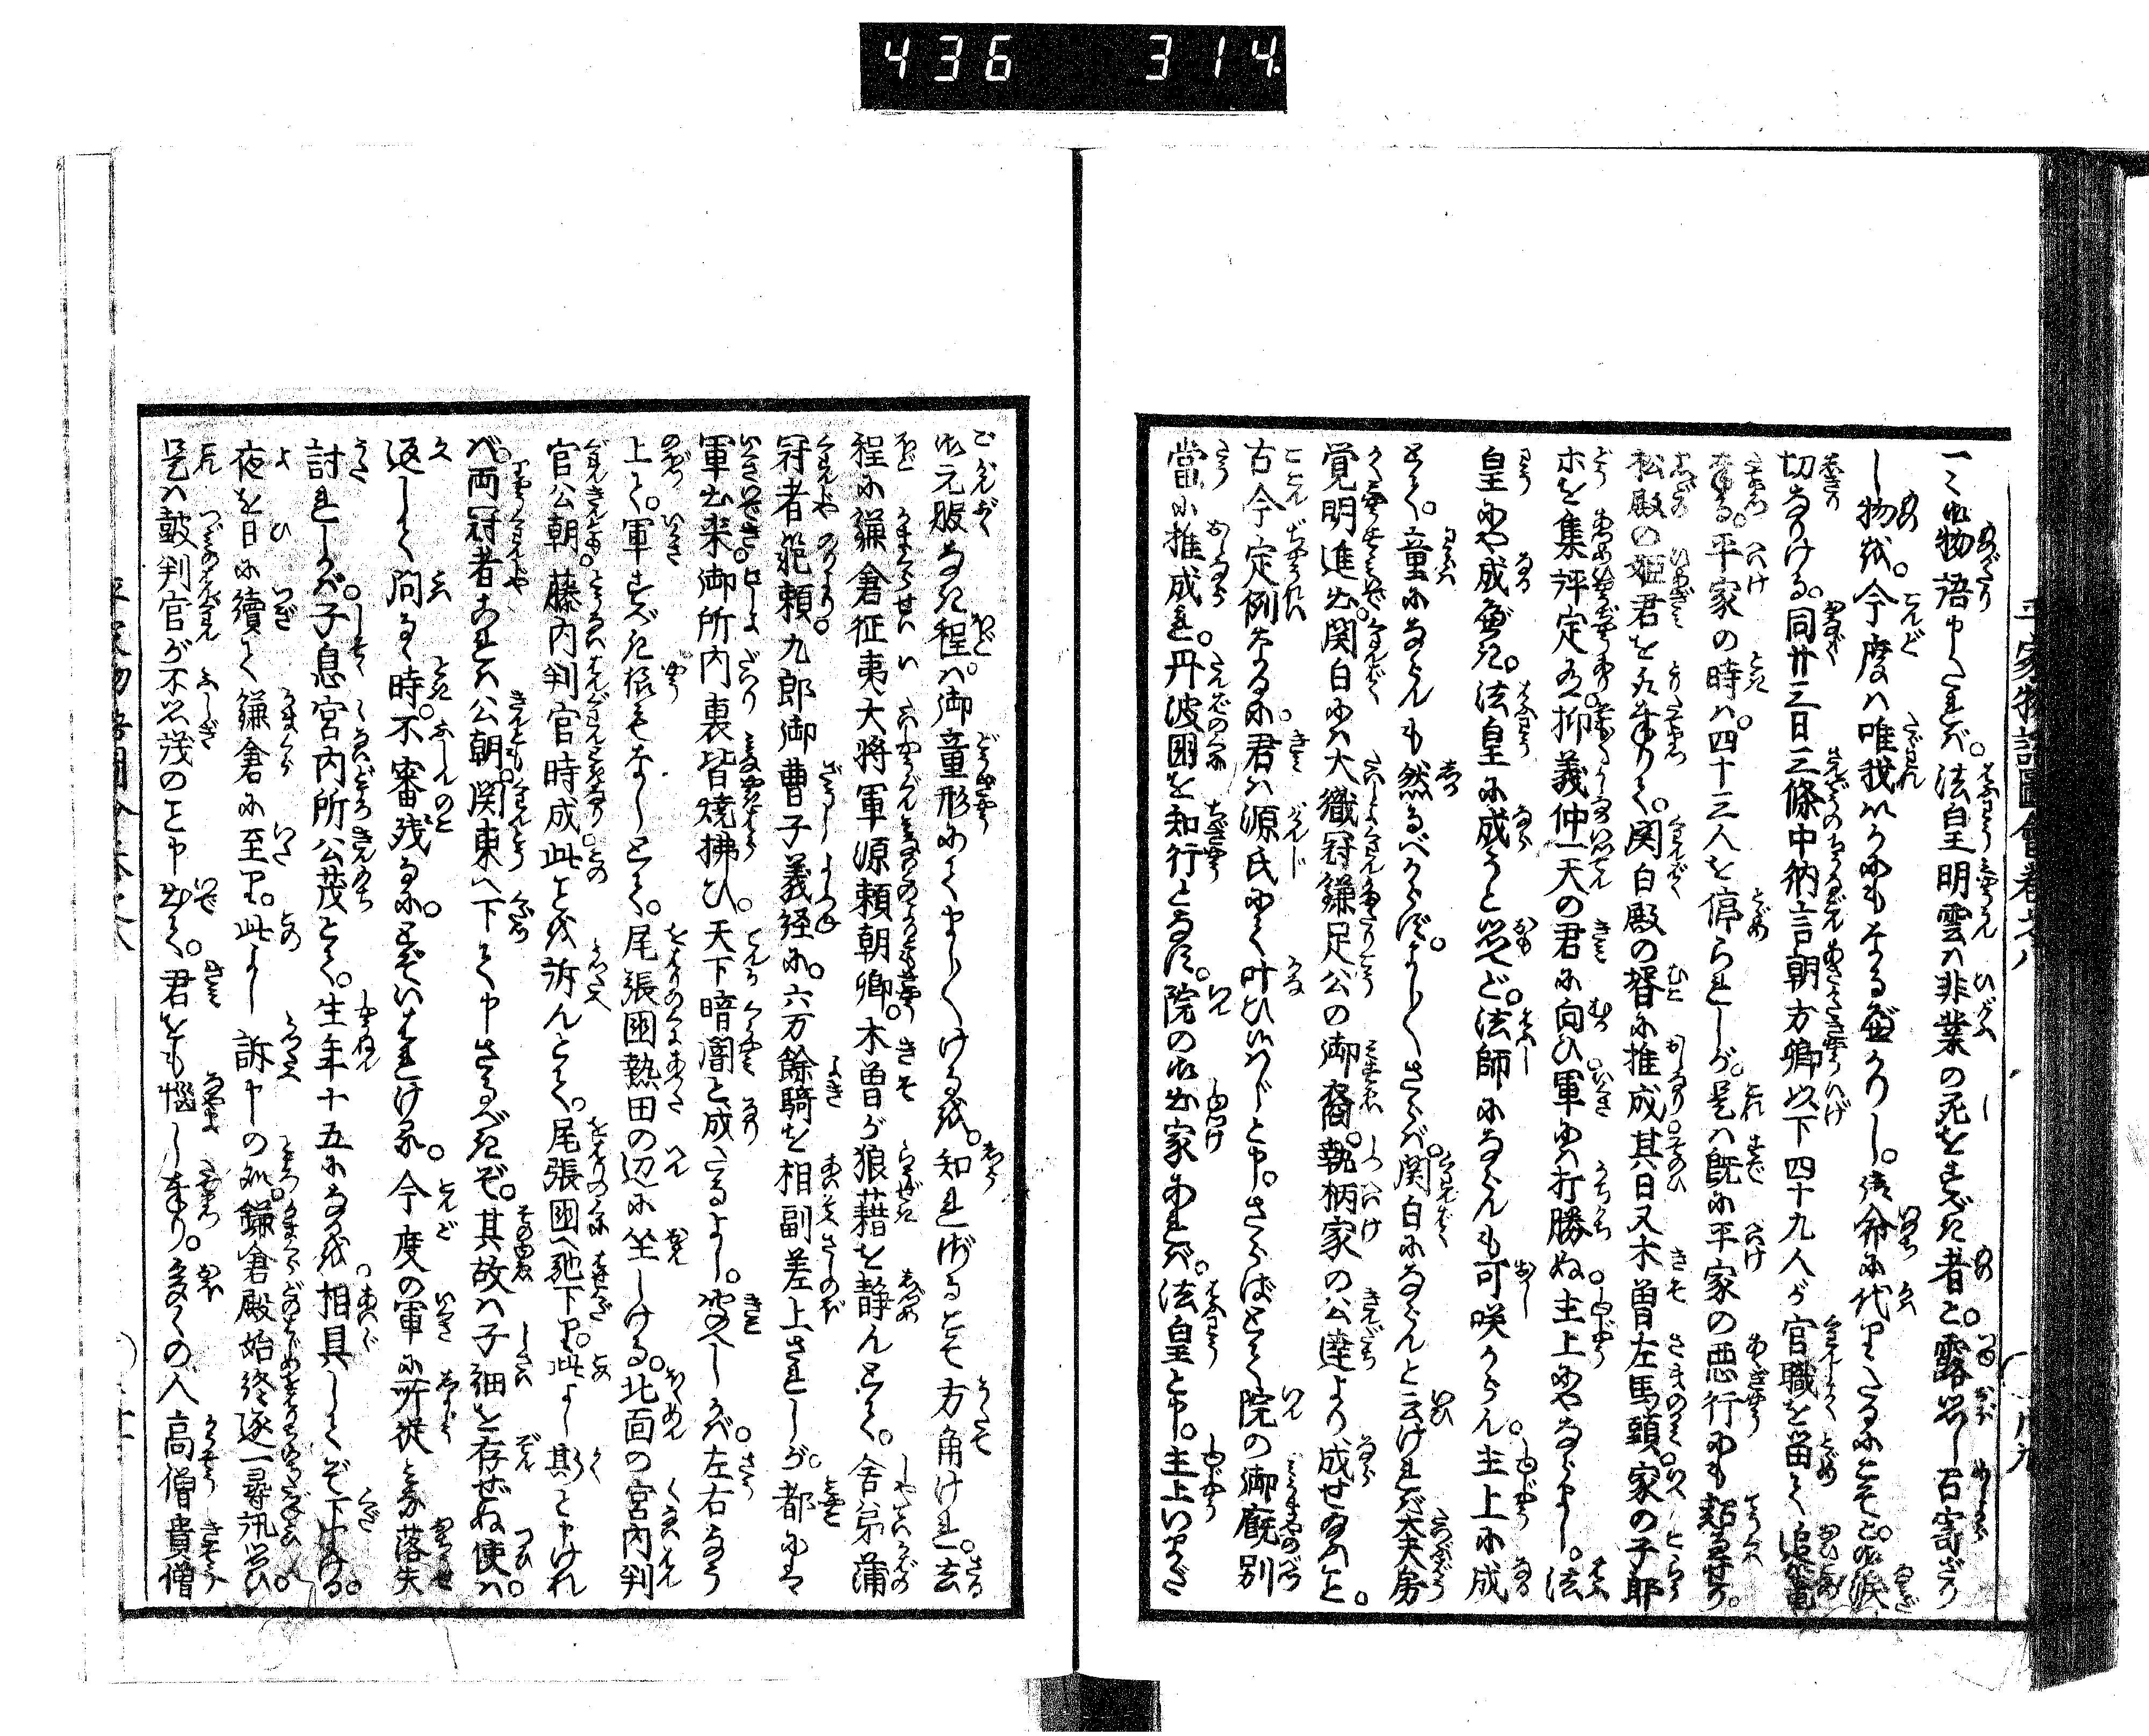 436 314.
一々御物語申たれば。法皇明雲ハ非業の死をすべき者と。露思し召寄ざり
し物を。今度ハ唯我いかにもなるべかりし。御命に代りたるにこそと。御涙
切なりける。同廿三日三條中納言朝方卿以下四十九人が官職を留て追籠
奉る。平家の時ハ。四十三人を停られしが。是ハ既に平家の悪行にも超たり。
松殿の姫君を取奉りて。関白殿の聟に推成其日又木曽左馬頭。家の子郎
等を集評定す。抑義仲一天の君に向ひ軍にハ打勝ぬ主上にやならまし。法
皇にや成べき。法皇に成うと思へど。法師にならんも可咲からん。主上に成
とて。童にならんも然るべからず。よし〳〵さらバ。関白にならんと云けれバ大夫房
覚明進出関白にハ大織冠鎌足公の御裔。執柄家の公達より成せ給ふこと。
古今定例なるに。君ハ源氏にて叶ひ候ハじと申。さらばとて院の御廐別
當に推成て。丹波国を知行となす。院の御出家あれバ。法皇と申。主上いまだ
御元服なき程ハ。御童形にてまし〳〵けるを。知ざるこそ方角けれ。去
程に鎌倉征夷大将軍源頼朝卿。木曽が狼藉を静んとて。舎弟蒲
冠者範頼九郎御曹子義経に。六万餘騎を相副差上されしが。都にハ
軍出来御所内裏皆焼拂ひ。天下暗闇と成たるよし。聞へしかバ。左右なう
上て。軍すべき様もなしとて。尾張国熱田の辺に坐しける。北面の宮内判
官公朝。藤内判官時成此ことを訴んとて。尾張国へ馳下り。此よし斯と申けれ
バ。両冠者されハ公朝。関東へ下て申さるべきぞ。其故ハ子細を存ぜぬ使ハ。
返して問るゝ時。不審残るに。とぞいはれける。今度の軍に所従とも落失
討れしかバ。子息宮内所公茂とて。生年十五になるを。相具してぞ下りける。
夜を日に續て鎌倉に至り。此よし訴申のに。鎌倉殿始終逐一尋訊給ひ。
是ハ鼓判官が不思議のこと申出て。君をも悩し奉り。多くの人高僧貴僧